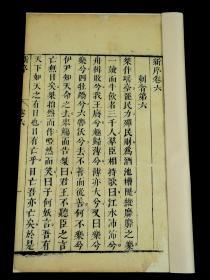 新序卷六
刺奢第六
桀作瑤臺罷民力殫民財爲酒池糟隄縱靡靡之樂
一鼓而牛飲者三千人羣臣相持歌曰江水沛沛兮
舟楫敗兮我王廢兮趣歸薄兮薄亦大兮又曰樂兮
樂兮四牡蹻兮六轡沃兮去不善而從善何不樂兮
伊尹知天命之去舉觴而告桀曰君王不聽臣之言
亡無日矣桀拍然而作啞然而笑曰子何妖言吾有
天下如天之有日也日有亡乎日亡吾亦亡矣於是